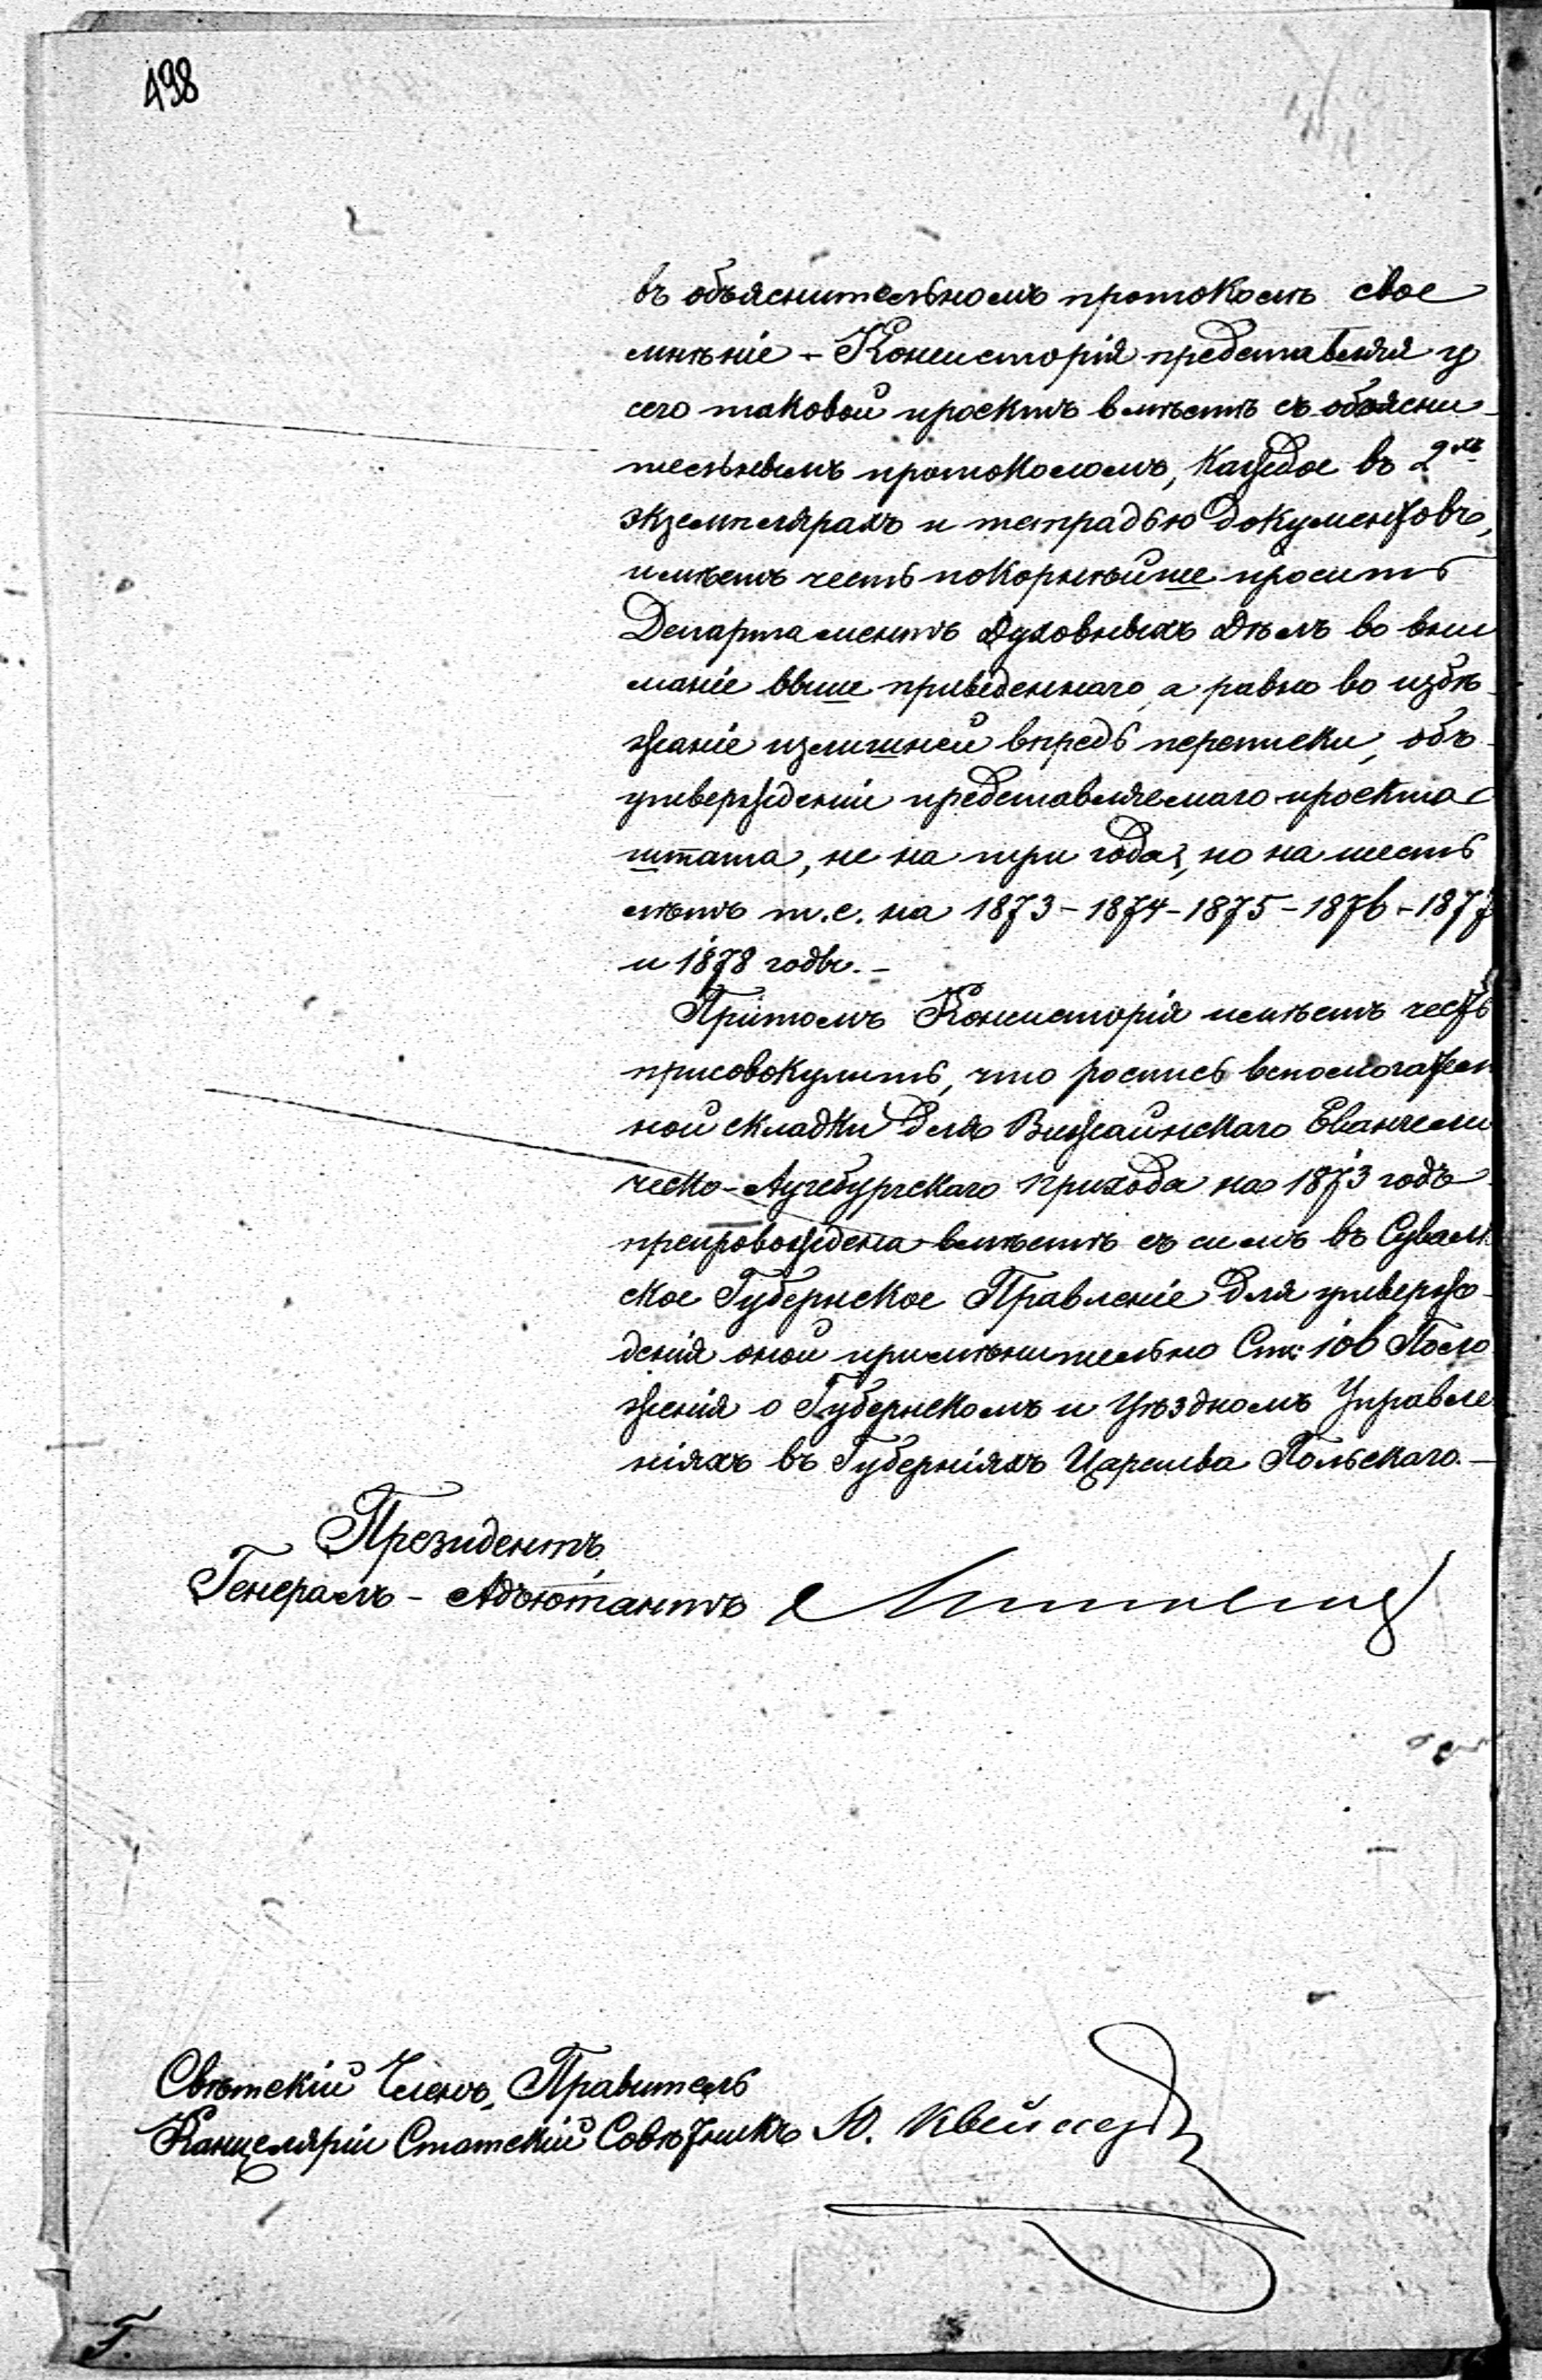 498
въ объяснительномъ протоколѣ свое
мнѣніе – Консисторія представляя у
сего таковой проектъ вмѣстѣ съ объясни-
тельнымъ протоколомъ, каждое въ 2хъ
экземплярахъ и тетрадью документовъ,
имѣетъ честь покорнѣйше просить
Департаментъ Духовныхъ Дѣлъ во вни
маніе выше приведеннаго, а равно во избѣ-
жаніе излишней впредь переписки, объ
утвержденіи представляемаго проекта
штата, не на три года, но на шесть
лѣтъ т.е. на 1873 – 1874 – 1875 – 1876 – 1877
и 1878 годы. –
Притомъ Консисторія имѣетъ честь
присовокупить, что роспись вспомогатель
ной складки для Вижайнскаго Евангели
ческо-Аугсбургскаго прихода на 1873 годъ
препровождена вмѣстѣ съ симъ въ Сувалк
ское Губернское Правленіе для утверж-
денія оной примѣнительно Ст: 106 Поло
женія о Губернскомъ и Уѣздномъ Управле
ніяхъ въ Губерніяхъ Царства Польскаго. –
Президентъ,
Генералъ – Адъютантъ
Свѣтскій Членъ, Правитель
Канцеляріи Статскій Совѣтникъ Ю.
Г.